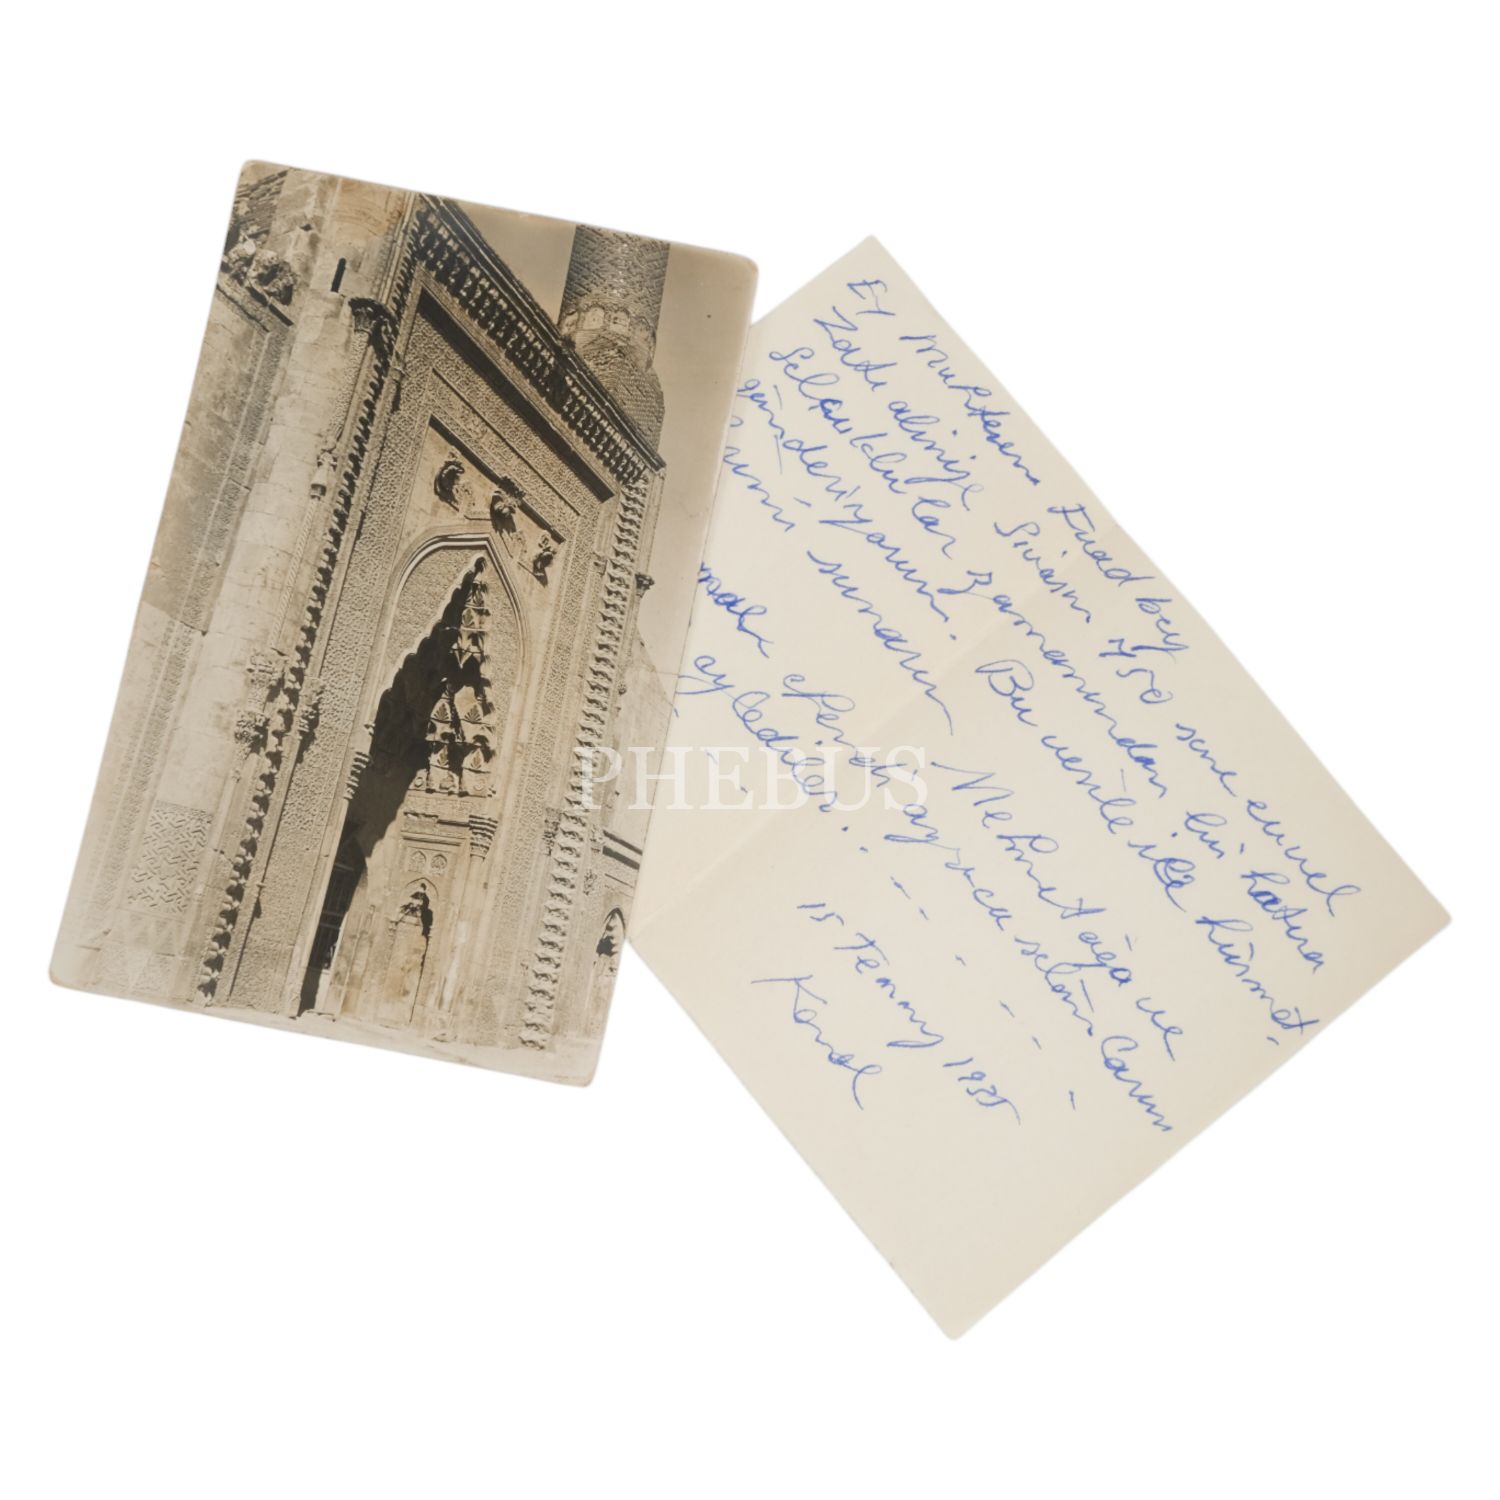 Ey Muhterem Fuad bey
Zatı aliniye Sivasın 750 sene evvel
Selçuklular zamanından bir hatıra
gönderiyorum. Bu vesile ile hürmet
sunarım Mehmet ağa ve
efendi ayrıca selâm
eylediler.
15 Temmuz 1935
Kemal
PHEBUS